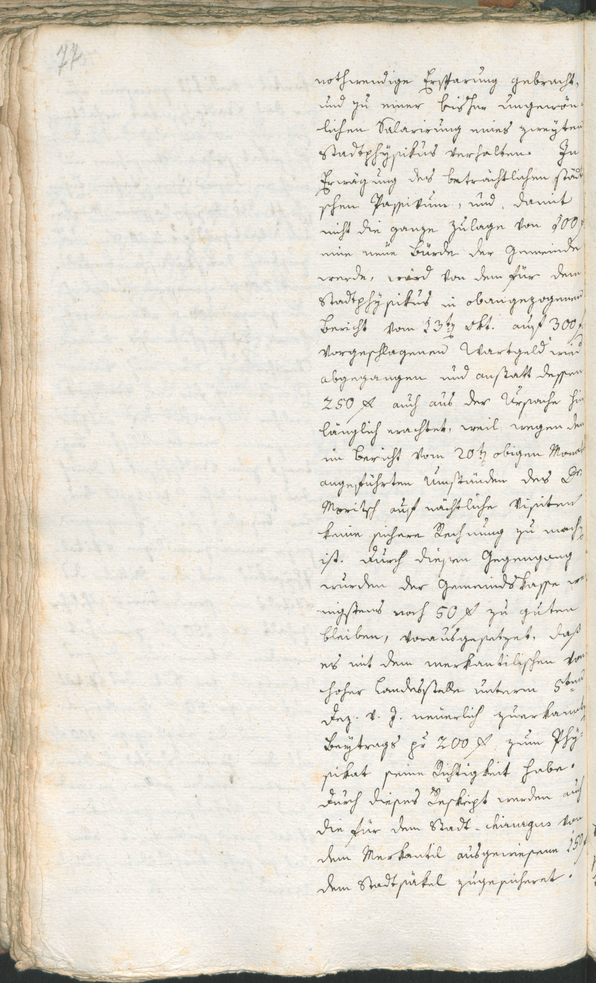 77
nothwendige Ersparung gebracht,
und zu einer bisher ungewöhn
lichen Salarirung eines zweyten
Stadtphysikus verhalten. In
Erwägung des beträchtlichen städti
schen Passivum, und damit
nicht die ganze Zulage von 100 f
eine neue Bürde der Gemeinde
werde, wird von dem für den
Stadtphysikus in obangezogenen
Bericht vom 13t Okt. auf 300 f
vorgeschlagenen Wartgeld
abgegangen und anstatt dessen
250 f auch aus der Ursache hin
länglich erachtet, weil wegen den
im Bericht vom 20t obigen Monat
angeführten Umständen des Dr
Moritsch auf nächtliche Visiten
keine sichere Rechnung zu mach
ist. Durch diesen Gegengang
wurden der Gemeindskasse we
nigstens noch 50 f zu guten
bleiben, vorausgesetzet, daß
es mit dem merkantilischen von
hoher Landesstelle unterm 5ten
Dez. v. J. neuerlich zuerkannt
Beytrags pr 200 f zum Phy-
sikat seine Richtigkeit habe.
Durch dieses Reskript werden auch
die für dem Stadt-chirurgus von
dem Merkantil ausgewiesene 150
dem Stadtsäkel zugesicheret.